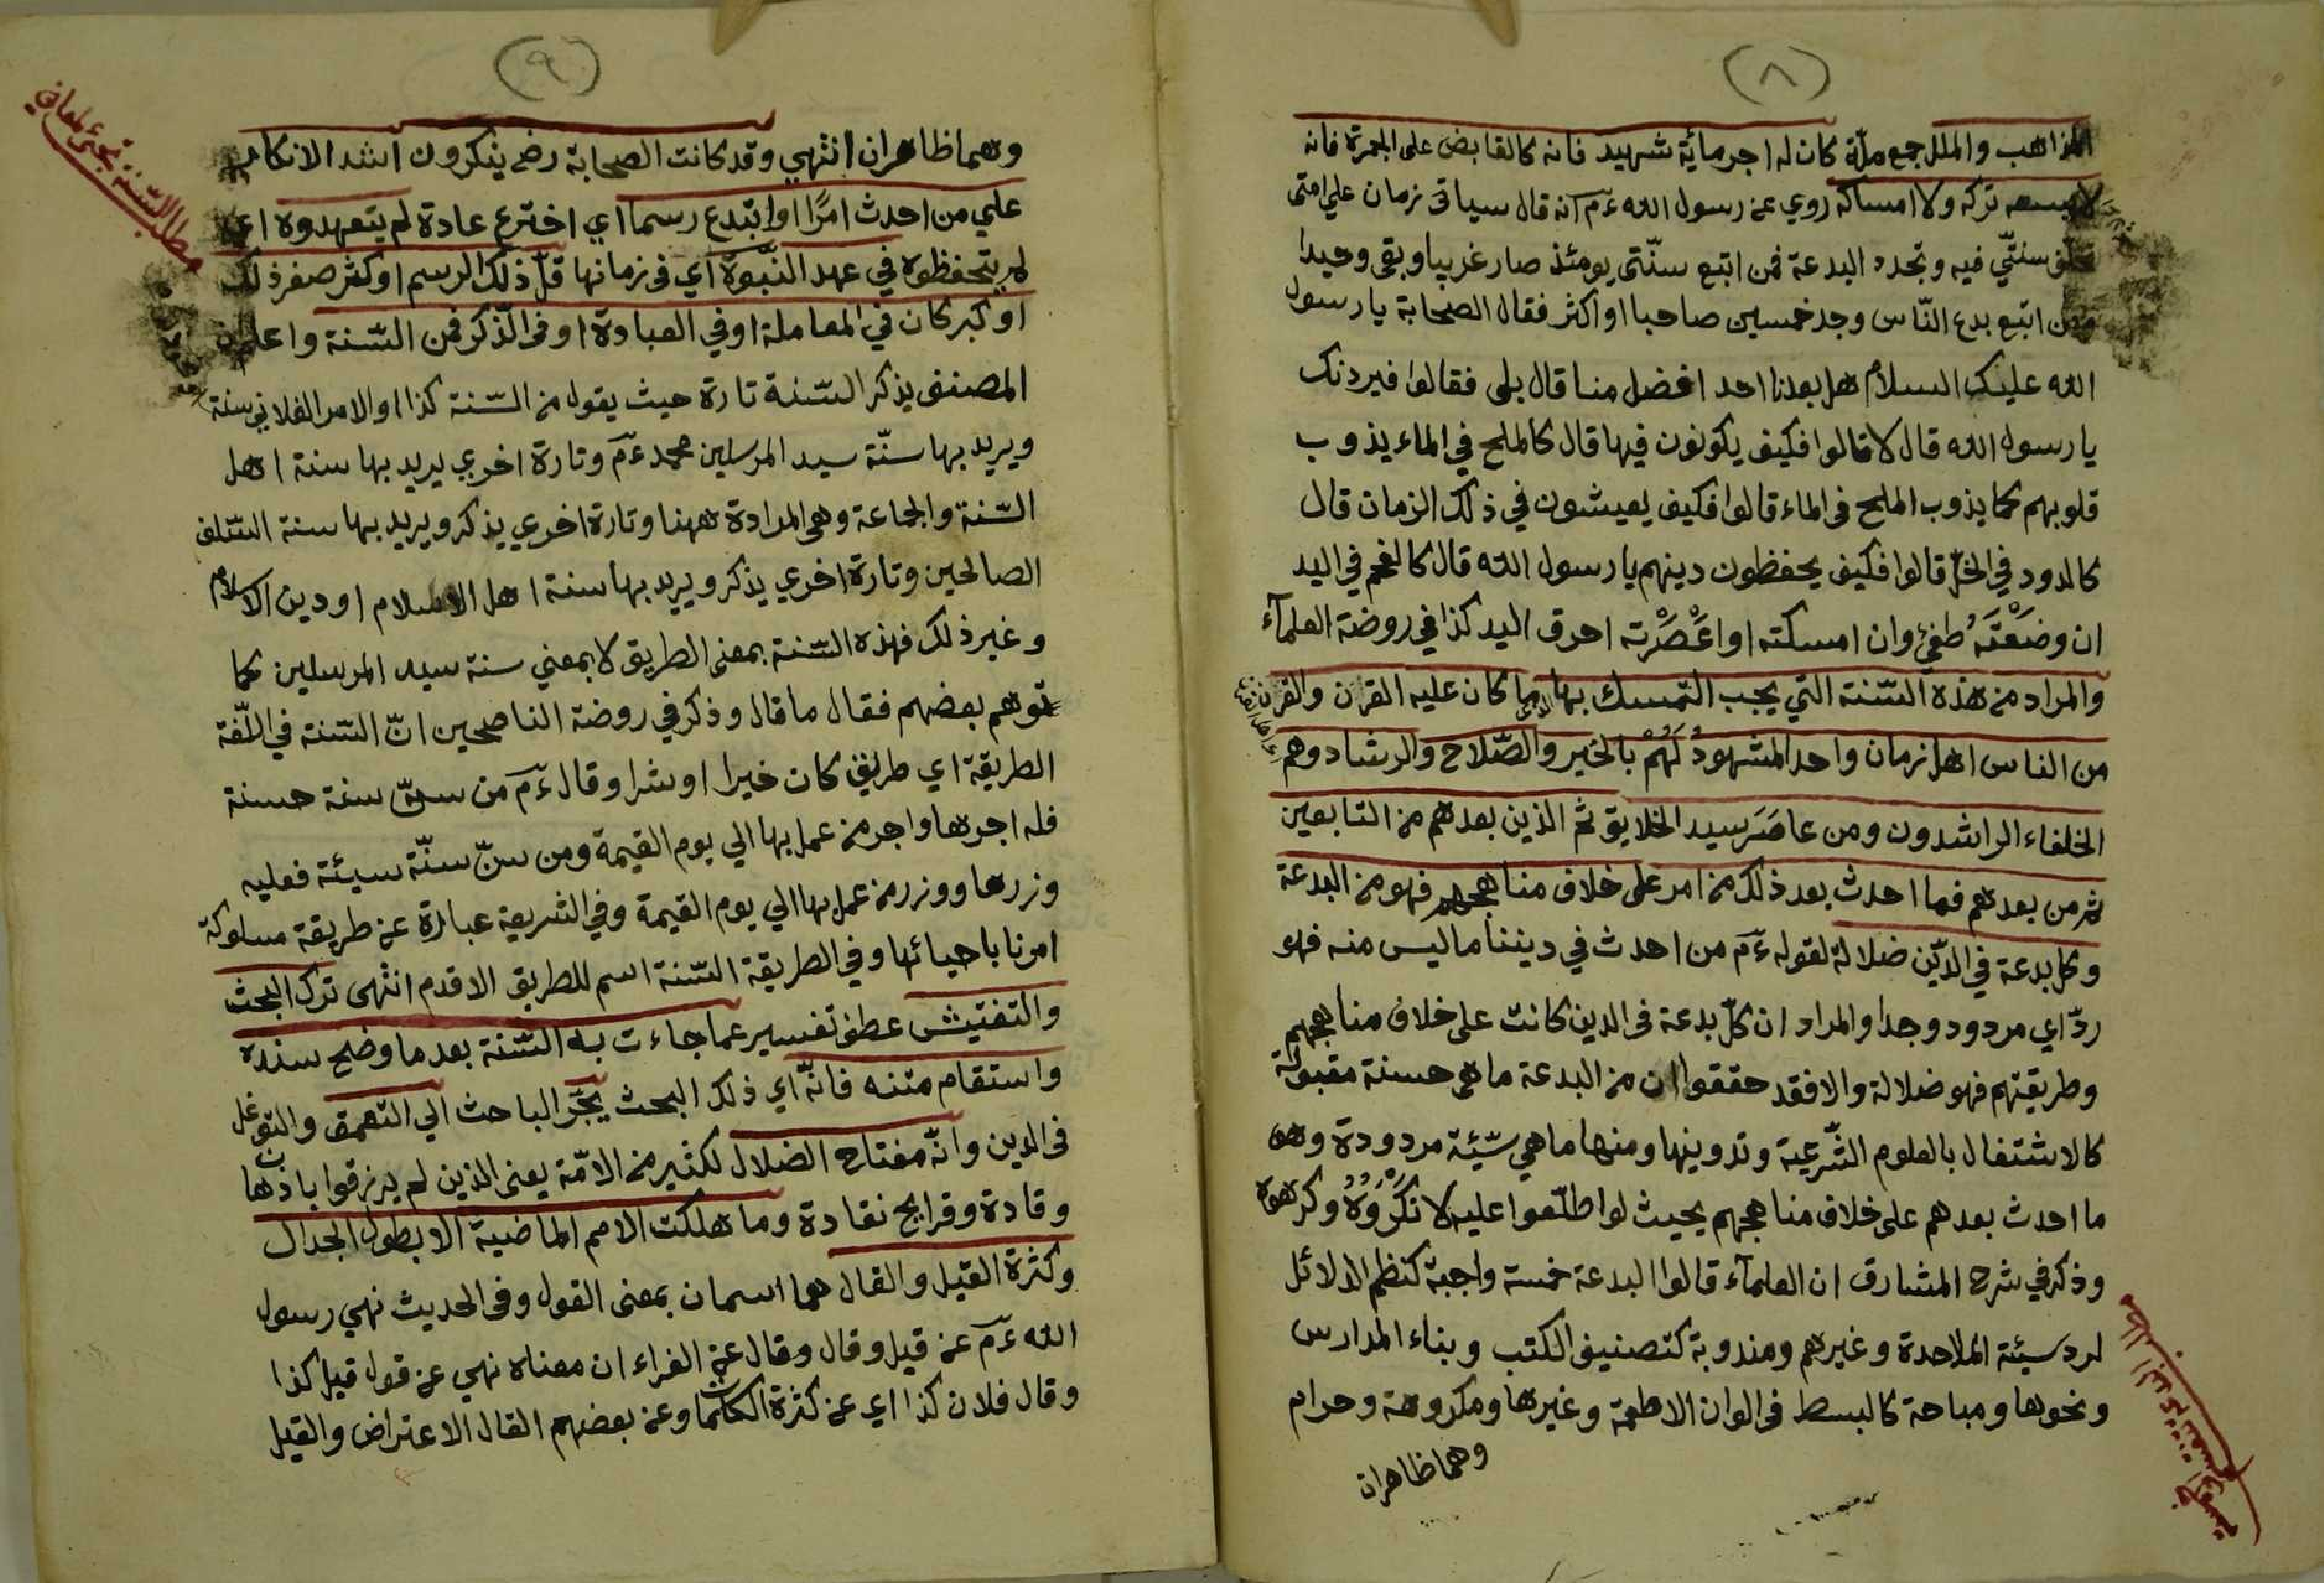 (٨)
المذاهب والملل جمع ملّة كان له اجر مائة شهيد فانه كالقابض على الجمرة فانه
لا يسعه تركه ولا امساكه روي عن رسول الله ءم انه قال سياتى زمان على امتى
سنتّي فيه وتجدد البدعة فمن اتبع سنّتى يومئذ صار غريبا وبقى وحيدا
ومن اتبع بدع النّاس وجد خمسين صاحبا او اكثر فقال الصحابة يا رسول
الله عليك السلام هل بعدنا احد افضل منا قال بلى فقالوا فيردنك
يا رسول الله قال لا قالوا فكيف يكونون فيها قال كالملح في الماء يذوب
قلوبهم كما يذوب الملح فى الماء قالوا فكيف يعيشون في ذلك الزمان قال
كالدود في الخلّ قالوا فكيف يحفظون دينهم يا رسول الله قال كالفحم في اليد
ان وضَعْتَهُ طفئ وان امسكته او اعْصَرْته احرق اليد كذا في روضة العلمآء
والمراد من هذه السّنة التي يجب التّمسك بها ما كان عليه القرن والقرن
من الناس اهل زمان واحد المشهودُ لَهُمْ بالخير والصّلاح والرشاد وهم
الخلفاء الراشدون ومن عاصَرَ سيد الخلايق ثم الذين بعدهم من التابعين
ثم من بعدهم فما احدث بعد ذلك من امر على خلاف مناهجهم فهو من البدعة
وكل بدعة في الدّين ضلالة لقوله ءم من احدث في ديننا ما ليس منه فهو
ردّ اي مردود وجدا والمراد ان كلّ بدعة فى الدين كانت على خلاف مناهجهم
وطريقتهم فهو ضلالة والا فقد حققوا ان من البدعة ما هى حسنة مقبولة
كالاشتغال بالعلوم الشّرعية وتدوينها ومنها ما هي سّيئة مردودة وهى
ما احدث بعدهم على خلاف مناهجهم بحيث لو اطلّعوا عليه لانكَرُوهُ وكرهوه
وذكر في شرح المشارق ان العلمآء قالوا البدعة خمسة واجبة كنظم الدلائل
لرد سيئة الملاحدة وغيرهم ومندوبة كتصنيف الكتب وبناء المدارس
ونحوها ومباحة كالبسط فى الوان الاطعمة وغيرها ومكروهة وحرام
وهما ظاهران
(٩)
مطلب السّنة تجئ لمعانى
وهما ظاهران انتهي وقد كانت الصحابة رضى ينكرون اشد الانكار
علي من احدث امرًا او ابتدع رسما اي اخترع عادة لم يتعهدوه اي
لم يتحفظوه في عهد النّبوة اي فى زمانها قلّ ذلك الرسم او كثر صغر ذلك
او كبر كان في المعاملة او في العبادة او فى الذّكر فمن السّنة واعلم ان
المصنف يذكر السّنة تارة حيث يقول من السّنة كذا او الامر الفلاني سنة
ويريد بها سنّة سيد المرسلين محمد ءم وتارة اخري يريد بها سنة اهل
السّنة والجماعة وهى المرادة ههنا وتارة اخري يذكر ويريد بها سنة السّلف
الصالحين وتارة اخري يذكر ويريد بها سنة اهل الاسلام او دين الاسلام
وغير ذلك فهذه السّنة بمعنى الطريق لا بمعني سنة سيد المرسلين كما
توهم بعضهم فقال ما قال وذكر في روضة الناصحين انّ السّنة في اللّغة
الطريقة اي طريق كان خيرا او شرا وقال ءم من سنّ سنة حسنة
فله اجرها واجر من عمل بها الي يوم القيمة ومن سنّ سنّة سيئة فعليه
وزرها ووزر من عمل بها الي يوم القيمة وفي الشريعة عبارة عن طريقة مسلوكة
امرنا باحيائها وفي الطريقة السّنة اسم للطريق الاقدم انتهى ترك البحث
والتفتيش عطف تفسير عما جاءت به السّنة بعد ما وضح سنده
واستقام متنه فانّه اي ذلك البحث يجّر الباحث الي التعمق والتوغل
فى الدين وانّه مفتاح الضلال لكثير من الامّة يعنى الذين لم يرزقوا باذهان
وقادة وقرايح نقادة وما هلكت الامم الماضية الا بطول الجدال
وكثرة القيل والقال هما اسمان بمعنى القول وفى الحديث نهي رسول
الله ءم عن قيل وقال وقال عن الفراء ان معناه نهي عن قول قيل كذا
وقال فلان كذا اي عن كثرة الكلمات وعن بعضهم القال الاعتراض والقيل